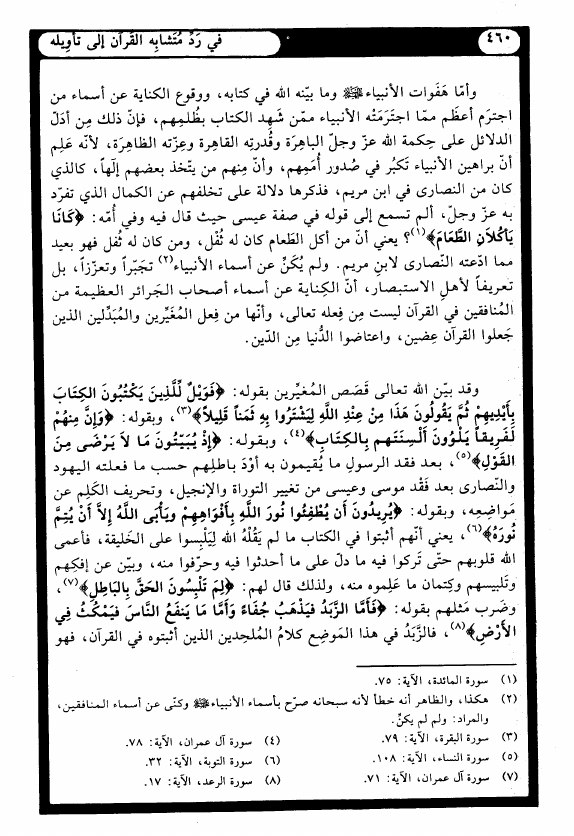 ٤٦٠
في رَدِّ مُتَشابِه القرآن إلى تأوِيله
وأمّا هَفَوات الأنبياءﷺ وما بيّنه الله في كتابه، ووقوع الكناية عن أسماء من
اجترَم أعظَم ممّا اجتَرَمَتْه الأنبياء ممّن شَهِد الكتاب بظُلمِهم، فإنّ ذلك مِن أدَلّ
الدلائل على حِكمة الله عزّ وجلّ الباهِرَة وقُدرتِه القاهِرة وعِزّته الظاهِرَة، لأنه عَلِم
أنّ براهين الأنبياء تَكبُر في صُدور أُمَمِهم، وأنّ مِنهم من يتّخذ بعضهم إلٰهاً، كالذي
كان من النصارى في ابن مريم، فذكرها دلالة على تخلفهم عن الكمال الذي تفرّد
به عزّ وجلّ، ألم تسمع إلى قوله في صفة عيسى حيث قال فيه وفي أُمّه: ﴿كَانَا
يَأكُلاَنِ الطَّعَامَ﴾(١)؟ يعني أنّ من أكل الطّعام كان له ثُفْل، ومن كان له ثُفل فهو بعيد
مما ادّعته النّصارى لابنِ مريم. ولم يُكَنِّ عن أسماء الأنبياء(٢) تجَبّراً وتعزّزاً، بل
تعريفاً لأهلِ الاستبصار، أنّ الكِناية عن أسماء أصحاب الجَرائر العظيمة من
المُنافقين في القرآن ليست مِن فِعله تعالى، وأنّها من فِعل المُغَيِّرين والمُبَدِّلين الذين
جَعلوا القرآن عِضين، واعتاضوا الدُّنيا مِن الدِّين.
وقد بيّن الله تعالى قَصَص المُغيِّرين بقوله: ﴿فَوَيْلٌ لِّلَّذِينَ يَكْتُبُونَ الكِتَابَ
بِأَيْدِيهِمْ ثُمَّ يَقُولُونَ هَذَا مِنْ عِندِ اللَّهِ لِيَشْتَرُوا بِهِ ثَمَناً قَلِيلاً﴾(٣)، وبقوله: ﴿وَإِنَّ مِنْهُم
لَفَرِيقاً يَلْوُونَ أَلْسِنَتَهم بِالكِتَابِ﴾(٤)، وبقوله: ﴿إِذْ يُبَيِّتُونَ مَا لاَ يَرْضَى مِنَ
القَوْلِ﴾(٥)، بعد فقد الرسولِ ما يُقيمون به أوْدَ باطِلِهم حسب ما فعلته اليهود
والنّصارى بعد فَقْد موسى وعيسى من تغيير التوراة والإنجيل، وتحريف الكَلِم عن
مَواضِعِه، وبقوله: ﴿يُرِيدُونَ أَن يُطْفِئُوا نُورَ اللَّهِ بِأَفْوَاهِهِمْ وَيَأبَى اللَّهُ إِلاَّ أَنْ يُتِمَّ
نُورَهُ﴾(٦)، يعني أنّهم أثبتوا في الكتاب ما لم يَقُلْهُ الله لِيَلْبِسوا على الخَليقة، فأعمى
الله قلوبهم حتّى تَركوا فيه ما دلّ على ما أحدثوا فيه وحرّفوا منه، وبيّن عن إفكِهم
وتَلبيسهم وكِتمان ما عَلِموه منه، ولذلك قال لهم: ﴿لِمَ تَلْبِسُونَ الحَقَّ بِالبَاطِلِ﴾(٧)،
وضَرب مَثلهم بقوله: ﴿فَأَمَّا الزَّبَدُ فَيَذْهَبُ جُفَاءً وَأَمَّا مَا يَنفَعُ النَّاسَ فَيَمْكُثُ فِي
الأَرْضِ﴾(٨)، فالزَّبَدُ في هذا المَوضِع كلامُ المُلحِدين الذين أثبتوه في القرآن، فهو
(١) سورة المائدة، الآية: ٧٥.
(٢) هكذا، والظاهر أنه خطأ لأنه سبحانه صرّح بأسماء الأنبياءﷺ وكنّى عن أسماء المنافقين،
والمراد: ولم لم يكنِّ.
(٣) سورة البقرة، الآية: ٧٩. (٤) سورة آل عمران، الآية: ٧٨.
(٥) سورة النساء، الآية: ١٠٨. (٦) سورة التوبة، الآية: ٣٢.
(٧) سورة آل عمران، الآية: ٧١. (٨) سورة الرعد، الآية: ١٧.